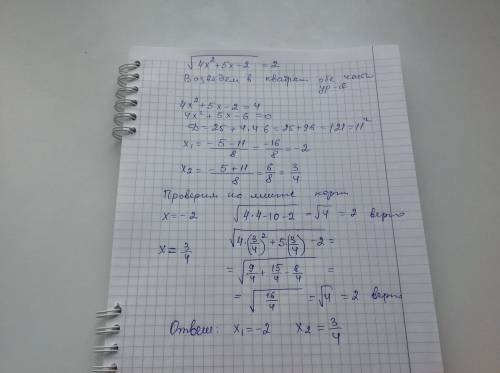 √(4x²+5x-2) = 2
Возведем в квадрат обе части
ур-я
4x²+5x-2=4
4x²+5x-6=0
D=25+4·4·6=25+96=121=11²
x₁= (-5-11)/8 = -16/8 = -2
x₂= (-5+11)/8 = 6/8 = 3/4
Проверим корн
x=-2 √(4·4-10-2) = √4 = 2 верно
x=3/4 √(4·(3/4)²+5(3/4)-2) =
= √(9/4+15/4-8/4) =
= √(16/4) = √4 = 2 верно
Ответ: x₁=-2 x₂=3/4